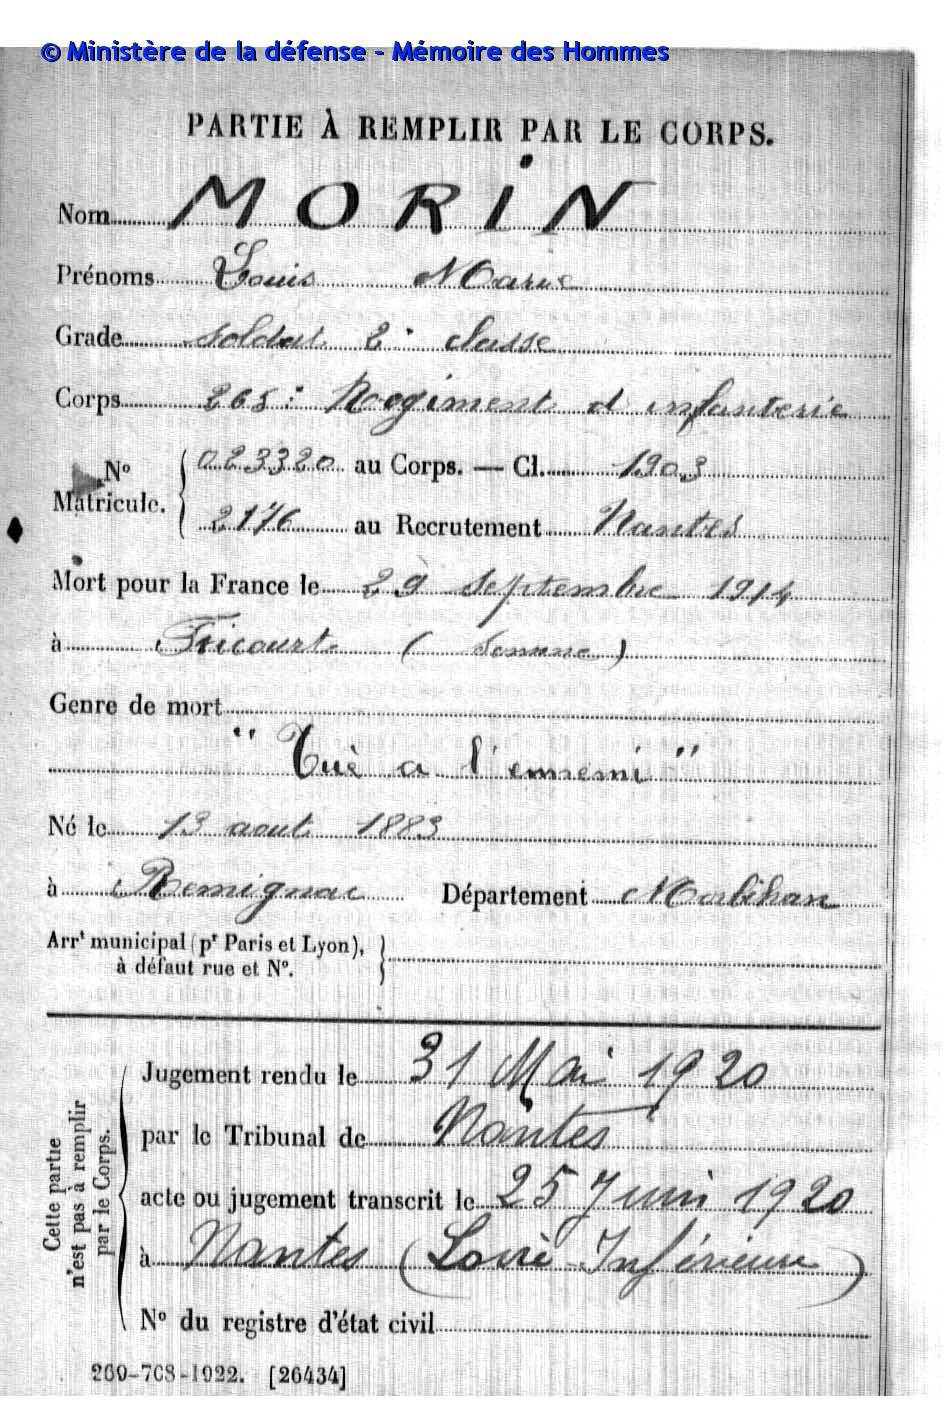 © Ministère de la défense - Mémoire des Hommes
PARTIE À REMPLIR PAR LE CORPS.
Nom MORIN
Prénoms Louis Marie
Grade soldat 2e classe
Corps 265e Régiment d infanterie
No Matricule. 023320 au Corps. — Cl. 1903
2176 au Recrutement Nantes
Mort pour la France le 29 septembre 1914
à Fricourt (Somme)
Genre de mort
"Tué a l'ennemi"
Né le 13 aout 1883
à Remignac Département Morbihan
Arrt municipal (pr Paris et Lyon),
à défaut rue et No.
Cette partie
n'est pas à remplir
par le Corps.
Jugement rendu le 31 Mai 1920
par le Tribunal de Nantes
acte ou jugement transcrit le 25 Juin 1920
à Nantes (Loire-Inférieure)
No du registre d'état civil
260-708-1922. [26434]